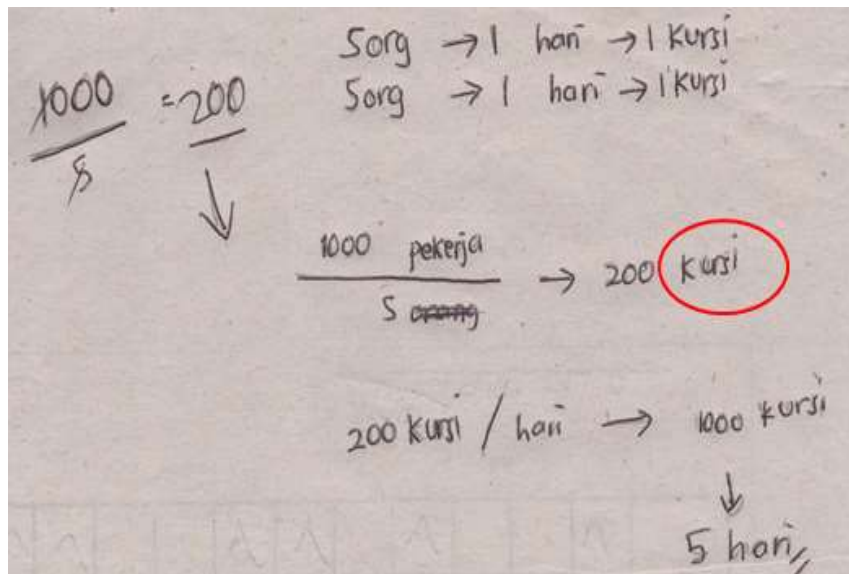 5 org → 1 hari → 1 kursi
5 org → 1 hari → 1 kursi
1000 = 200
5
↓
1000 pekerja → 200 kursi
5 orang
200 kursi / hari → 1000 kursi
↓
5 hari